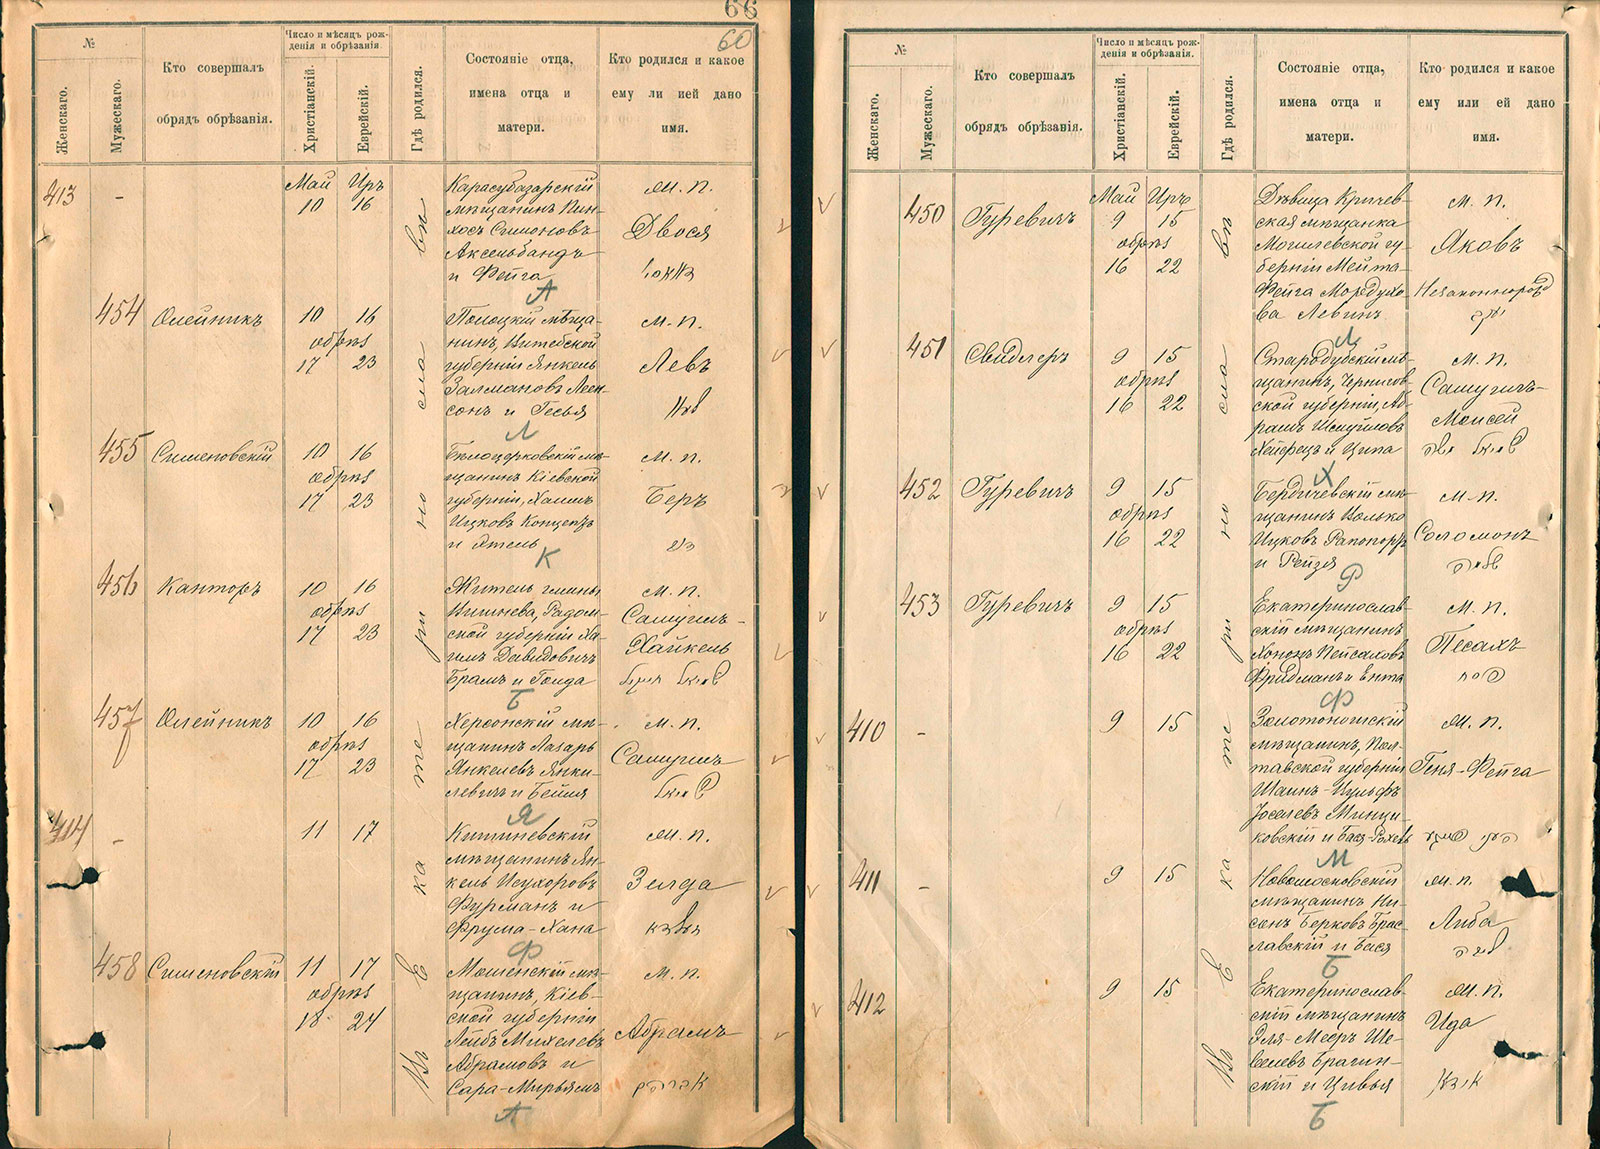 66
60
№
Женскаго.
Мужескаго.
Кто совершалъ
обрядъ обрѣзанія.
Число и мѣсяцъ рож-
денія и обрѣзанія.
Христіанскій.
Еврейскій.
Гдѣ родился.
Состояніе отца,
имена отца и
матери.
Кто родился и какое
ему ли ией дано
имя.
Въ Екатеринославѣ
413
-
Май Иръ
10 16
Карасубазарскій
мѣщанинъ Пин-
хосъ Симоновъ
Аксельбандъ
и Фейга
А
м. п.
Двося
454
Олейникъ
10 16
обрѣз
17 23
Полоцкій мѣща-
нинъ Витебской
губерніи Янкель
Залмановъ Леен-
сонъ и Гесья
Л
м. п.
Левъ
455
Сименовскій
10 16
обрѣз
17 23
Бѣлоцерковскій мѣ-
щанинъ Кіевской
губерніи, Хаимъ
Ицковъ
и Этель
К
м. п.
Беръ
456
Канторъ
10 16
обрѣз
17 23
Житель гмины
Радом-
ской губерніи Ха-
имъ Давидовичъ
Брамъ и Голда
Б
м. п.
Самуилъ-
Хайкель
457
Олейникъ
10 16
обрѣз
17 23
Херсонскій мѣ-
щанинъ Лазарь
Янкелевъ Янке-
левичъ и Бейля
Я
м. п.
Самуилъ
414
-
11 17
Кишиневскій
мѣщанинъ Ян-
кель Исухоровъ
Фурманъ и
Фрума-Хана
Ф
м. п.
Зелда
458
Сименовскій
11 17
обрѣз
18 24
Мошенскій мѣ-
щанинъ, Кіев-
ской губерніи
Лейбъ Михелевъ
Абрамовъ и
Сара-Мирьямъ
А
м. п.
Абрамъ
№
Женскаго.
Мужескаго.
Кто совершалъ
обрядъ обрѣзанія.
Число и мѣсяцъ рож-
денія и обрѣзанія.
Христіанскій.
Еврейскій.
Гдѣ родился.
Состояніе отца,
имена отца и
матери.
Кто родился и какое
ему или ей дано
имя.
Въ Екатеринославѣ
450
Гуревичъ
Май Иръ
9 15
обрѣз
16 22
Дѣвица Кричев-
ская мѣщанка
Могилевской гу-
берніи Мейта-
Фейга Мордухо-
ва Левинъ
Л
м. п.
Яковъ
Незаконнорожд
451
Свидлеръ
9 15
обрѣз
16 22
Стародубскій мѣ-
щанинъ, Чернигов-
ской губерніи, Аб-
рамъ Шмуйловъ
Хейфецъ и Ципа
Х
м. п.
Самуилъ-
Моисей
452
Гуревичъ
9 15
обрѣз
16 22
Бердичевскій мѣ-
щанинъ Волько
Ицковъ Рапопортъ
и Рейзя
Р
м. п.
Соломонъ
453
Гуревичъ
9 15
обрѣз
16 22
Екатеринослав-
скій мѣщанинъ
Хононъ Пейсаховъ
Фридманъ и Ента
Ф
м. п.
Песахъ
פסח
410
-
9 15
Золотоношскій
мѣщанинъ, Пол-
тавской губерніи
Шаинъ-Вульфъ
Іоселевъ Минци-
ковскій и Бася-Рохель
М
м. п.
Геня-Фейга
411
-
9 15
Новомосковскій
мѣщанинъ Ни-
сонъ Берковъ Брас-
лавскій и Бася
Б
м. п.
Либа
412
9 15
Екатеринослав-
скій мѣщанинъ
Эля-Мееръ Ше-
велевъ Брагин-
скій и Цивья
Б
м. п.
Ида